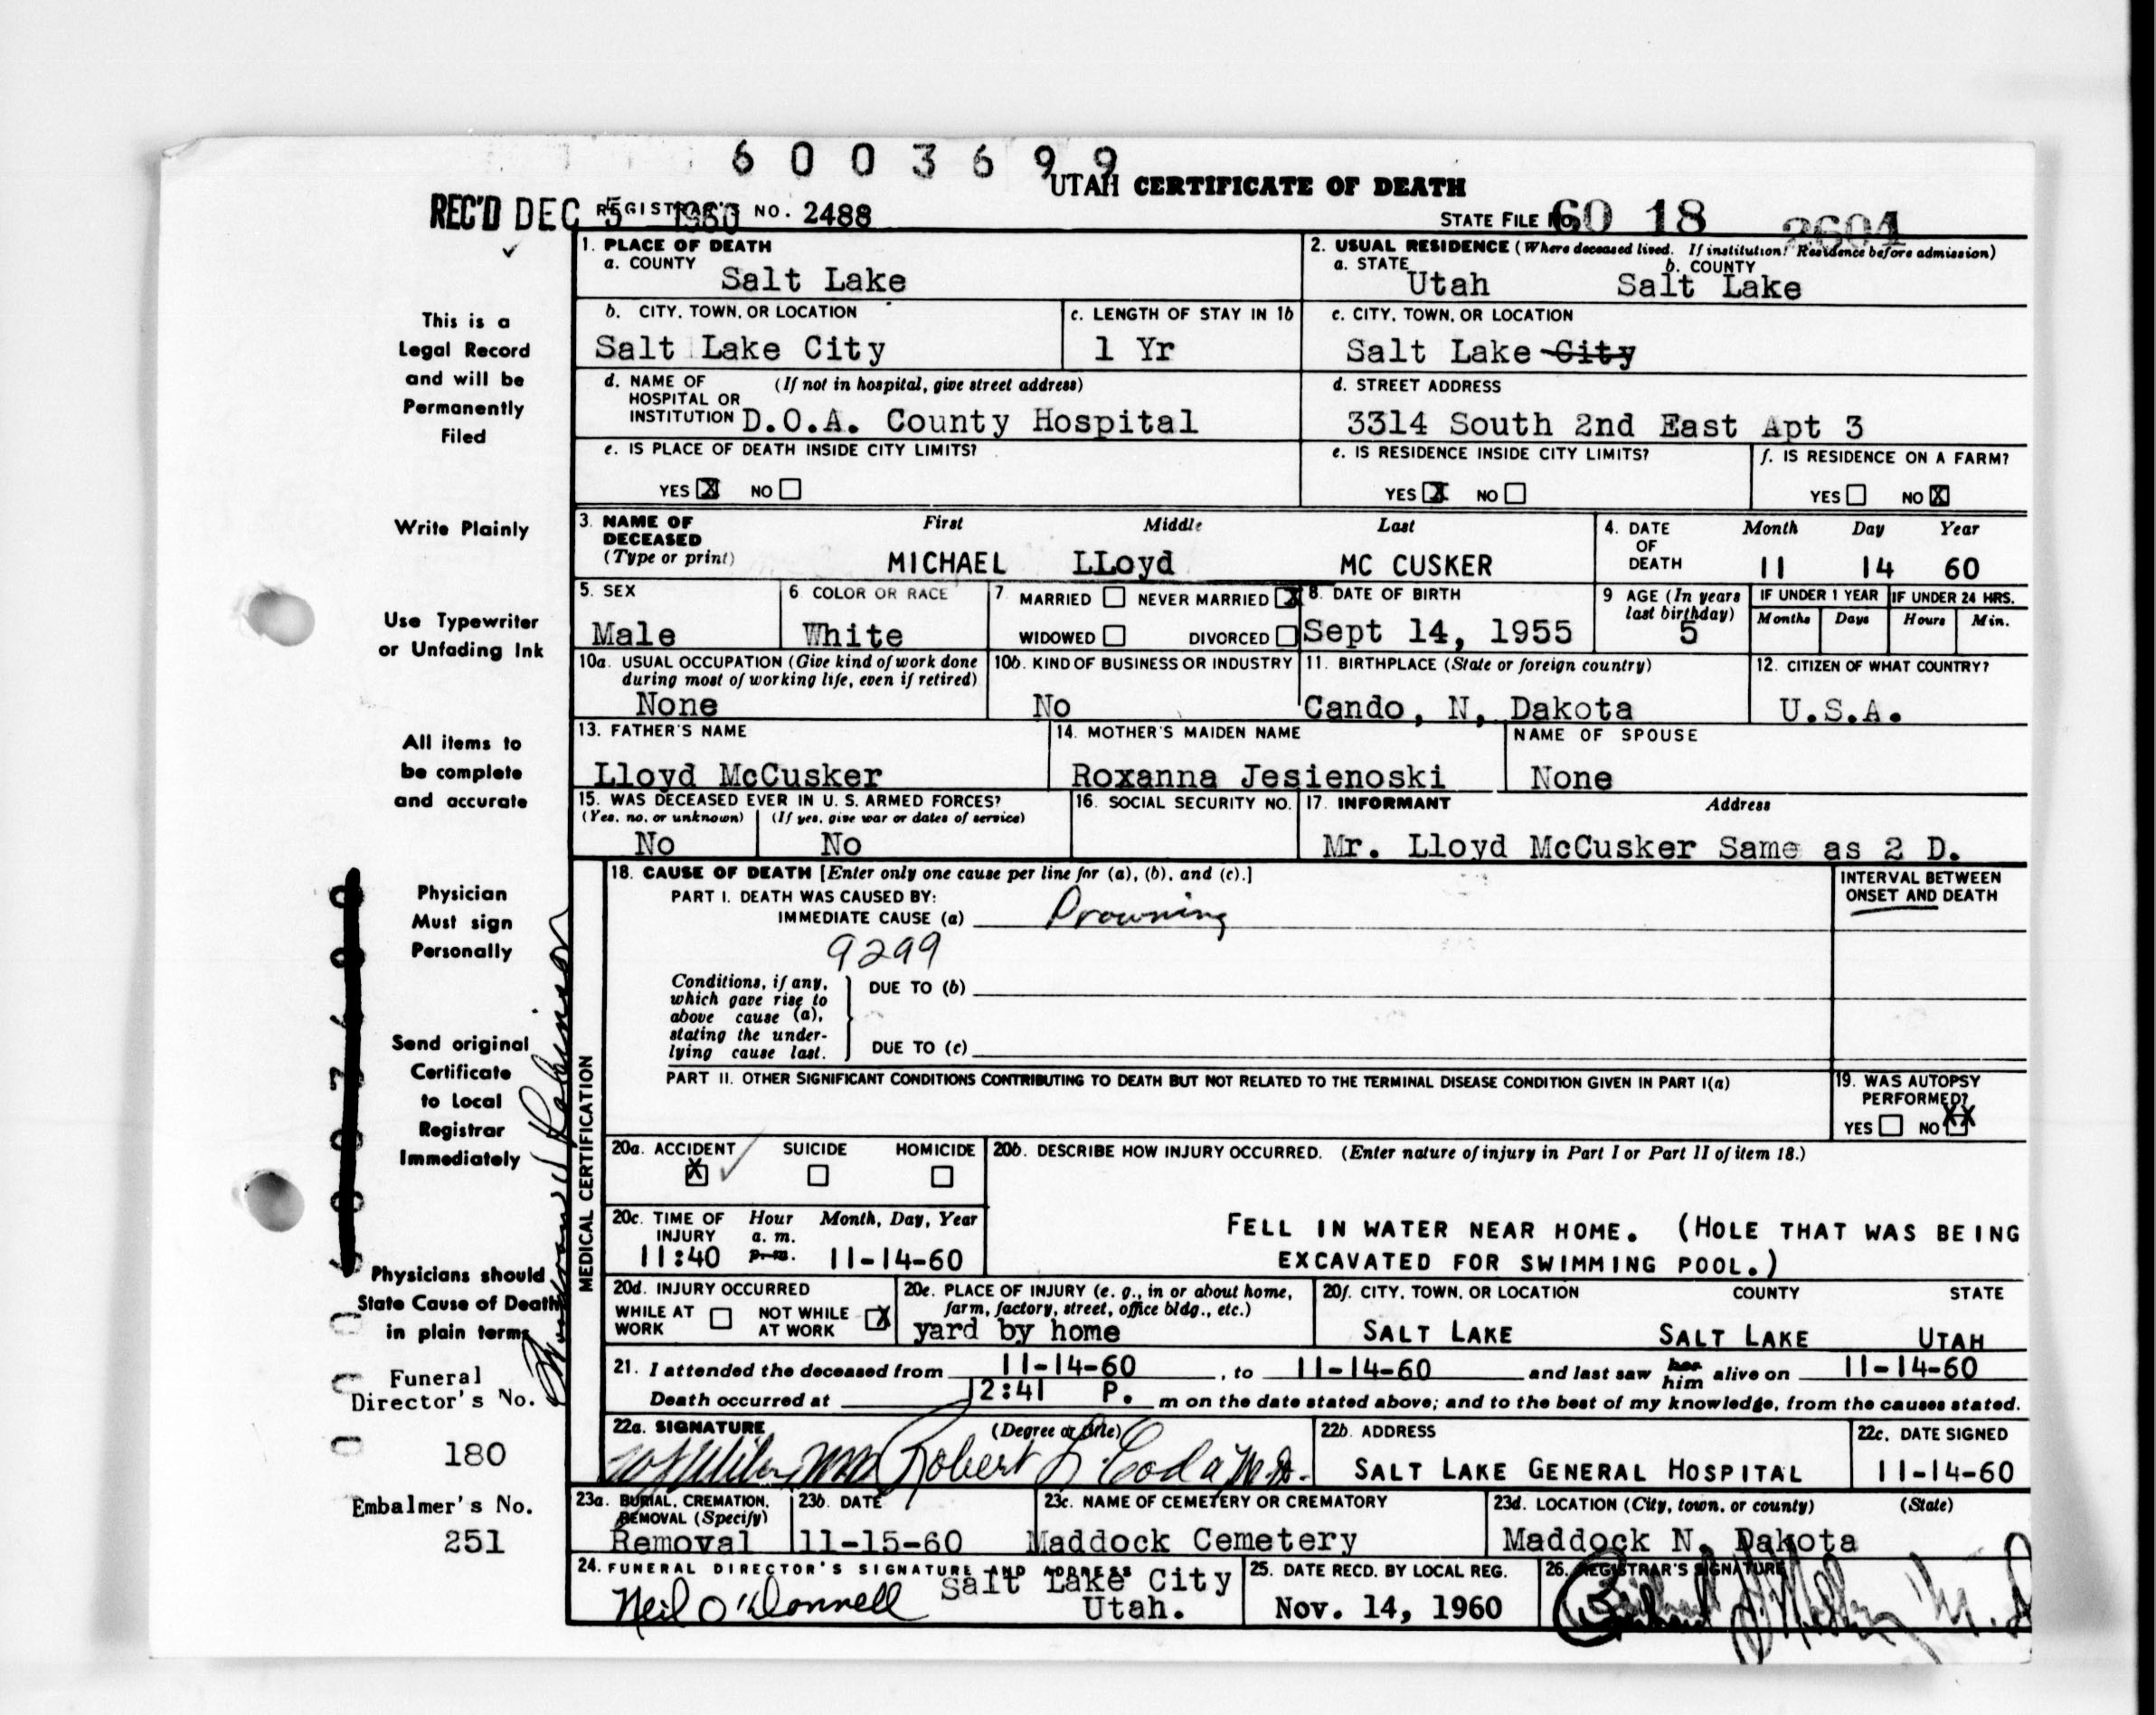 6 0 0 3 6 9 9
UTAH CERTIFICATE OF DEATH
REC'D DEC 5 1960 REGISTRAR'S NO. 2488
STATE FILE NO. 60 18 2604
1. PLACE OF DEATH
a. COUNTY Salt Lake
2. USUAL RESIDENCE (Where deceased lived. If institution: Residence before admission)
a. STATE Utah b. COUNTY Salt Lake
b. CITY, TOWN, OR LOCATION Salt Lake City
c. LENGTH OF STAY IN 1b 1 Yr
c. CITY, TOWN, OR LOCATION Salt Lake City
d. NAME OF HOSPITAL OR INSTITUTION (If not in hospital, give street address) D.O.A. County Hospital
d. STREET ADDRESS 3314 South 2nd East Apt 3
e. IS PLACE OF DEATH INSIDE CITY LIMITS?
YES X NO
e. IS RESIDENCE INSIDE CITY LIMITS?
YES X NO
f. IS RESIDENCE ON A FARM?
YES NO X
3. NAME OF DECEASED (Type or print)
First Middle Last
MICHAEL LLoyd MC CUSKER
4. DATE OF DEATH
Month Day Year
11 14 60
5. SEX Male
6. COLOR OR RACE White
7. MARRIED NEVER MARRIED X
WIDOWED DIVORCED
8. DATE OF BIRTH Sept 14, 1955
9. AGE (In years last birthday) 5
IF UNDER 1 YEAR IF UNDER 24 HRS.
Months Days Hours Min.
10a. USUAL OCCUPATION (Give kind of work done during most of working life, even if retired) None
10b. KIND OF BUSINESS OR INDUSTRY No
11. BIRTHPLACE (State or foreign country) Cando, N, Dakota
12. CITIZEN OF WHAT COUNTRY? U.S.A.
13. FATHER'S NAME Lloyd McCusker
14. MOTHER'S MAIDEN NAME Roxanna Jesienoski
NAME OF SPOUSE None
15. WAS DECEASED EVER IN U. S. ARMED FORCES?
(Yes, no, or unknown) No (If yes, give war or dates of service) No
16. SOCIAL SECURITY NO.
17. INFORMANT Address
Mr. Lloyd McCusker Same as 2 D.
MEDICAL CERTIFICATION
18. CAUSE OF DEATH [Enter only one cause per line for (a), (b), and (c).]
PART I. DEATH WAS CAUSED BY:
IMMEDIATE CAUSE (a) Drowning
9299
Conditions, if any, which gave rise to above cause (a), stating the underlying cause last.
DUE TO (b)
DUE TO (c)
INTERVAL BETWEEN ONSET AND DEATH
PART II. OTHER SIGNIFICANT CONDITIONS CONTRIBUTING TO DEATH BUT NOT RELATED TO THE TERMINAL DISEASE CONDITION GIVEN IN PART I(a)
19. WAS AUTOPSY PERFORMED?
YES NO XX
20a. ACCIDENT X SUICIDE HOMICIDE
20b. DESCRIBE HOW INJURY OCCURRED. (Enter nature of injury in Part I or Part II of item 18.)
FELL IN WATER NEAR HOME. (HOLE THAT WAS BEING
EXCAVATED FOR SWIMMING POOL.)
20c. TIME OF INJURY Hour a. m. p. m. Month, Day, Year
11:40 11-14-60
20d. INJURY OCCURRED
WHILE AT WORK NOT WHILE AT WORK X
20e. PLACE OF INJURY (e. g., in or about home, farm, factory, street, office bldg., etc.)
yard by home
20f. CITY, TOWN, OR LOCATION COUNTY STATE
SALT LAKE SALT LAKE UTAH
21. I attended the deceased from 11-14-60, to 11-14-60 and last saw her him alive on 11-14-60
Death occurred at 12:41 P. m on the date stated above; and to the best of my knowledge, from the causes stated.
22a. SIGNATURE (Degree or title)
Robert L. Coda M.D.
22b. ADDRESS SALT LAKE GENERAL HOSPITAL
22c. DATE SIGNED 11-14-60
23a. BURIAL, CREMATION, REMOVAL (Specify) Removal
23b. DATE 11-15-60
23c. NAME OF CEMETERY OR CREMATORY Maddock Cemetery
23d. LOCATION (City, town, or county) (State) Maddock N, Dakota
24. FUNERAL DIRECTOR'S SIGNATURE AND ADDRESS
Neil O'Donnell Salt Lake City
Utah.
25. DATE RECD. BY LOCAL REG. Nov. 14, 1960
26. REGISTRAR'S SIGNATURE
This is a
Legal Record
and will be
Permanently
Filed
Write Plainly
Use Typewriter
or Unfading Ink
All items to
be complete
and accurate
Physician
Must sign
Personally
Send original
Certificate
to Local
Registrar
Immediately
Physicians should
State Cause of Death
in plain terms
Funeral
Director's No.
180
Embalmer's No.
251